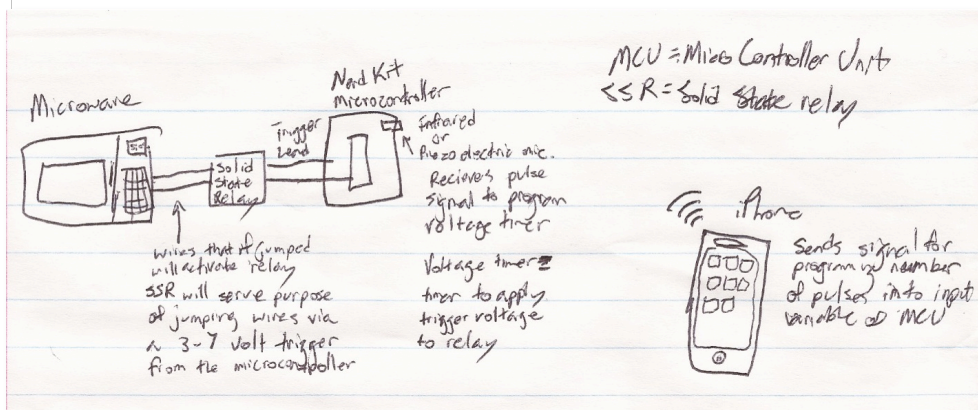 MCU = Micro Controller Unit
SSR = Solid State relay
Microwave
Nerd Kit
Microcontroller
Trigger
Lead
Solid
State
Relay
Infrared
or
Piezo electric mic.
Recieves pulse
signal to program
voltage timer
Voltage timer =
timer to apply
trigger voltage
to relay
wires that if jumped
will activate relay
SSR will serve purpose
of jumping wires via
a 3-7 volt trigger
from the microcontroller
iPhone
Sends signal for
programing number
of pulses into input
variable of MCU